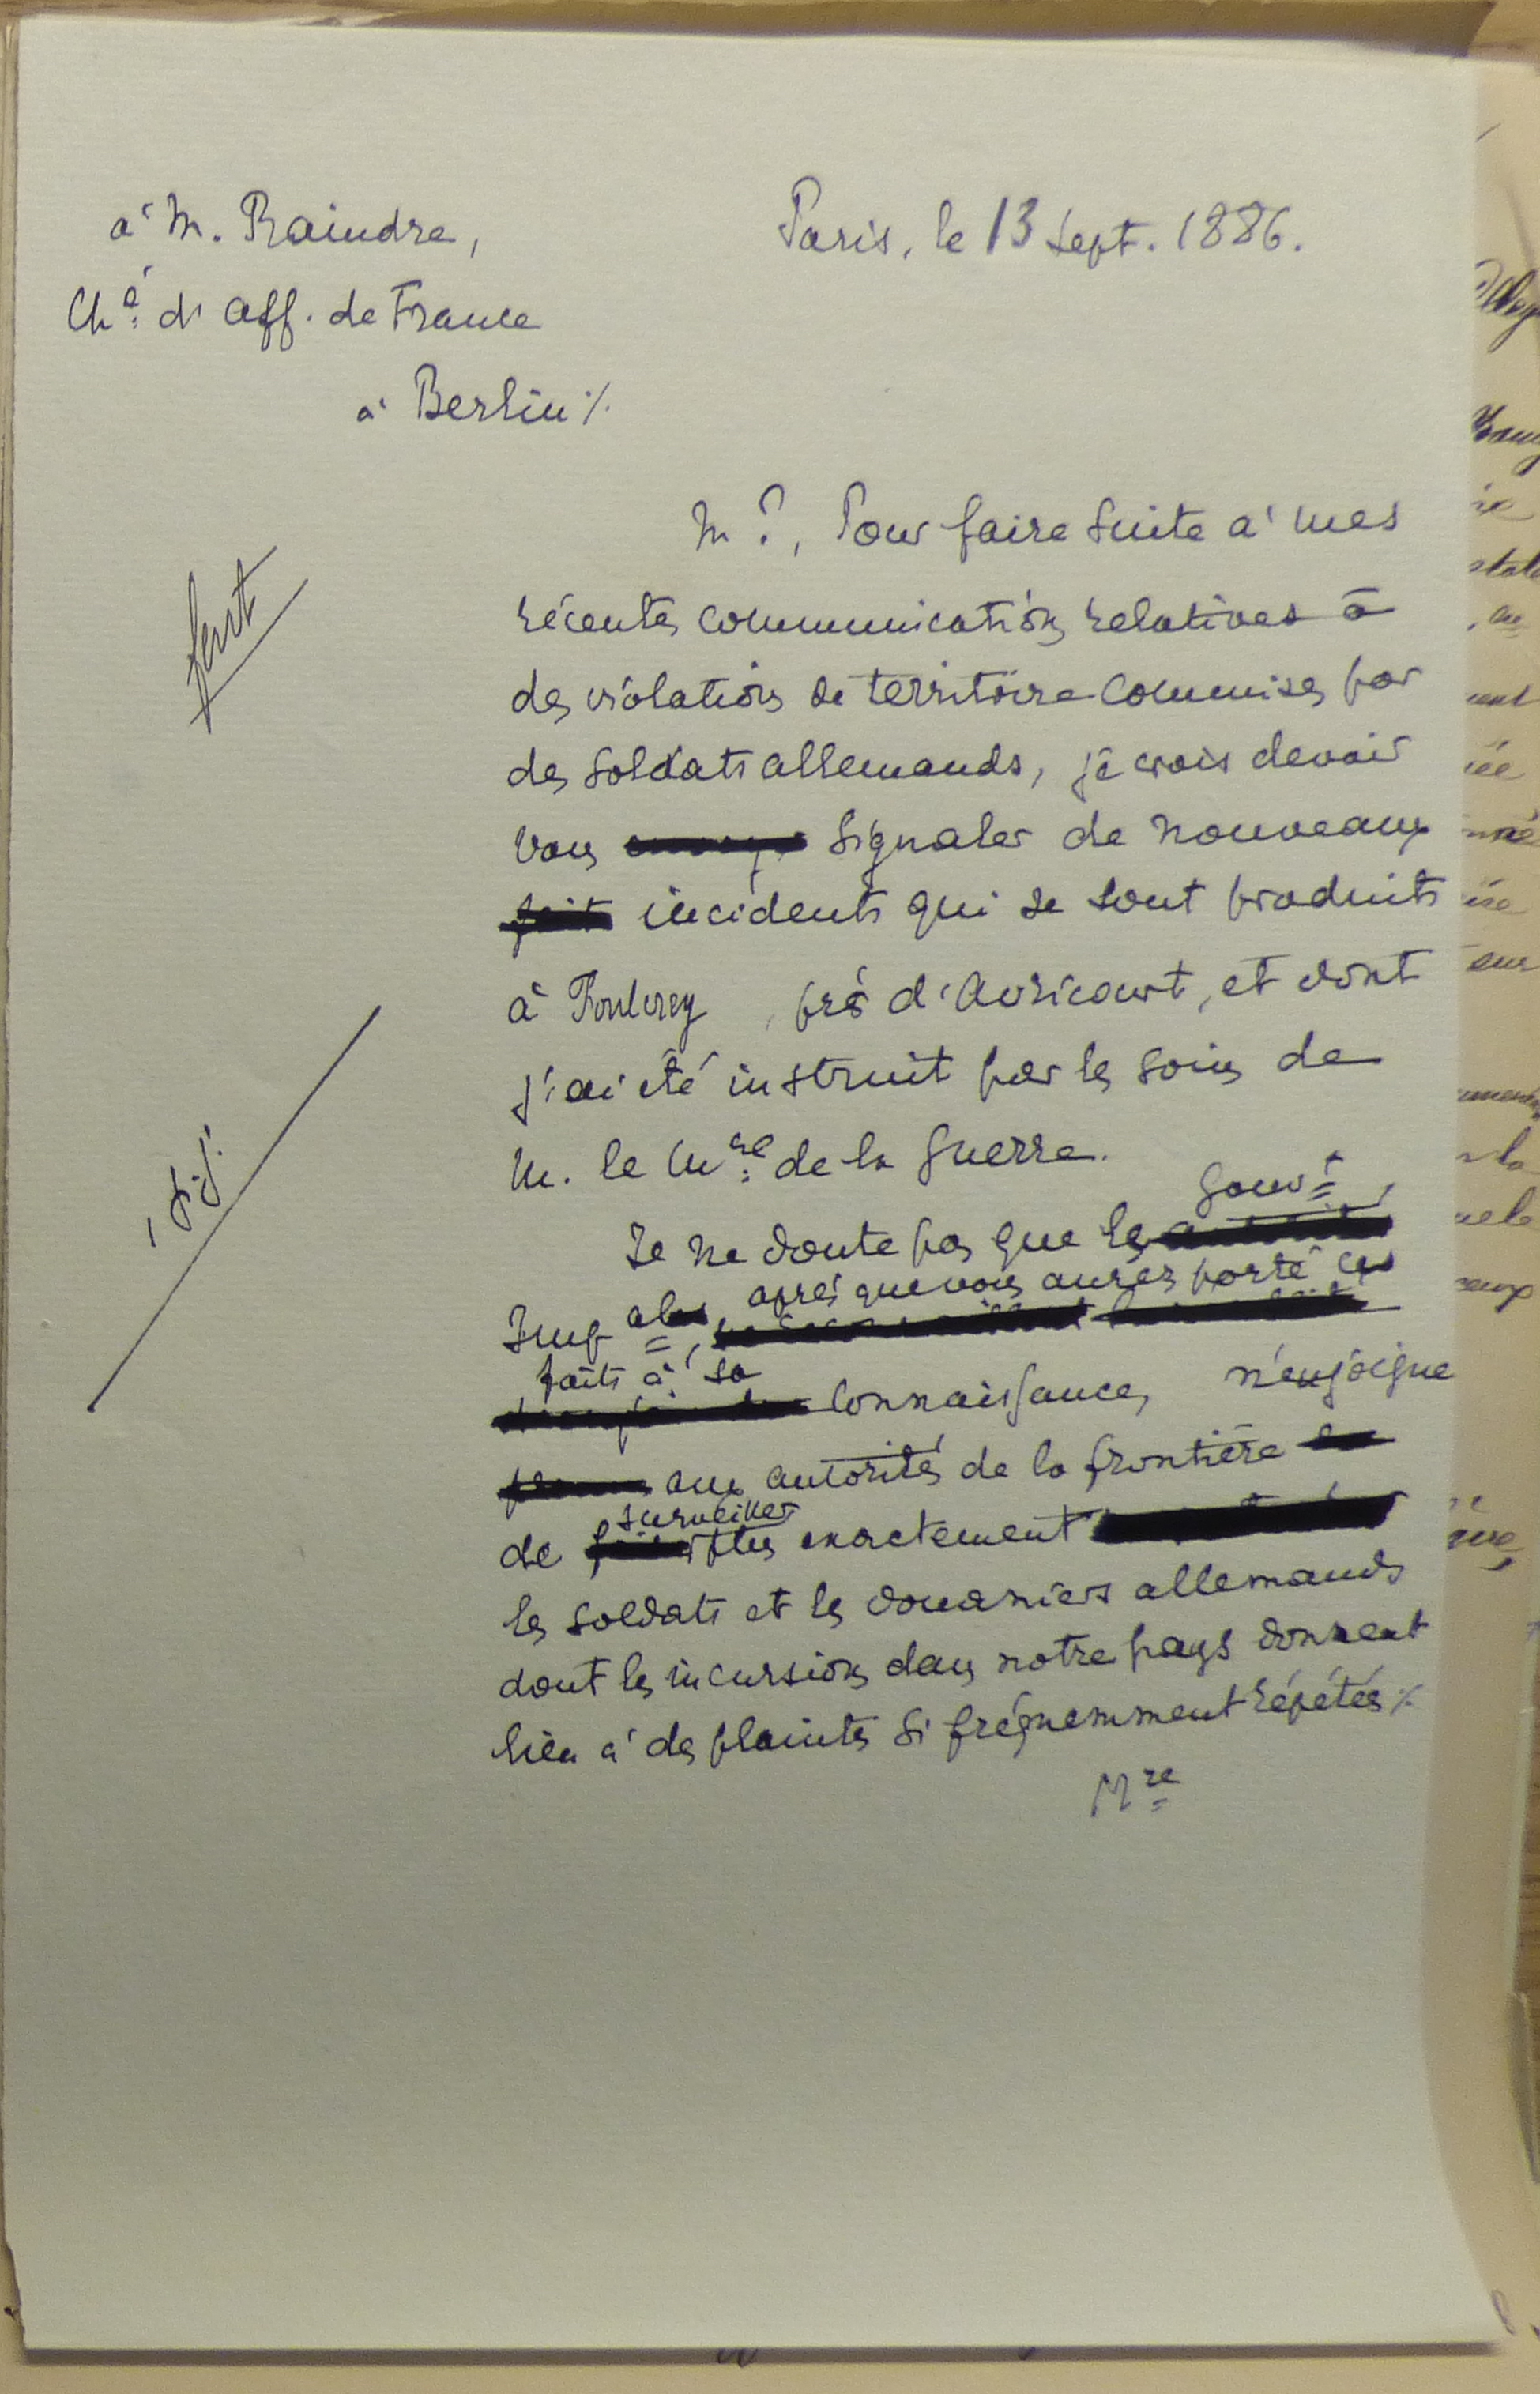 à M. Raindre,
Paris, le 13 Sept. 1886.
Ché d' aff. de France
à Berlin ./.
M r, Pour faire suite à mes
récentes communications relatives à
des violations de territoire commises par
des soldats allemands, je crois devoir
vous signaler de nouveaux
fait incidents qui se sont produits
à Foulcrey, près d'Avricourt, et dont
j'ai été instruit par les soins de
M. le Mre de la Guerre.
Gouvt
Je ne doute pas que les
après que vous aurez porté ces
Imp al,
faits à sa
connaissance, n'enjoigne
aux autorités de la frontière
surveiller
de plus exactement
les soldats et les douaniers allemands
dont les incursions dans notre pays donnent
lieu à des plaintes si fréquemment répétées ./.
Mre